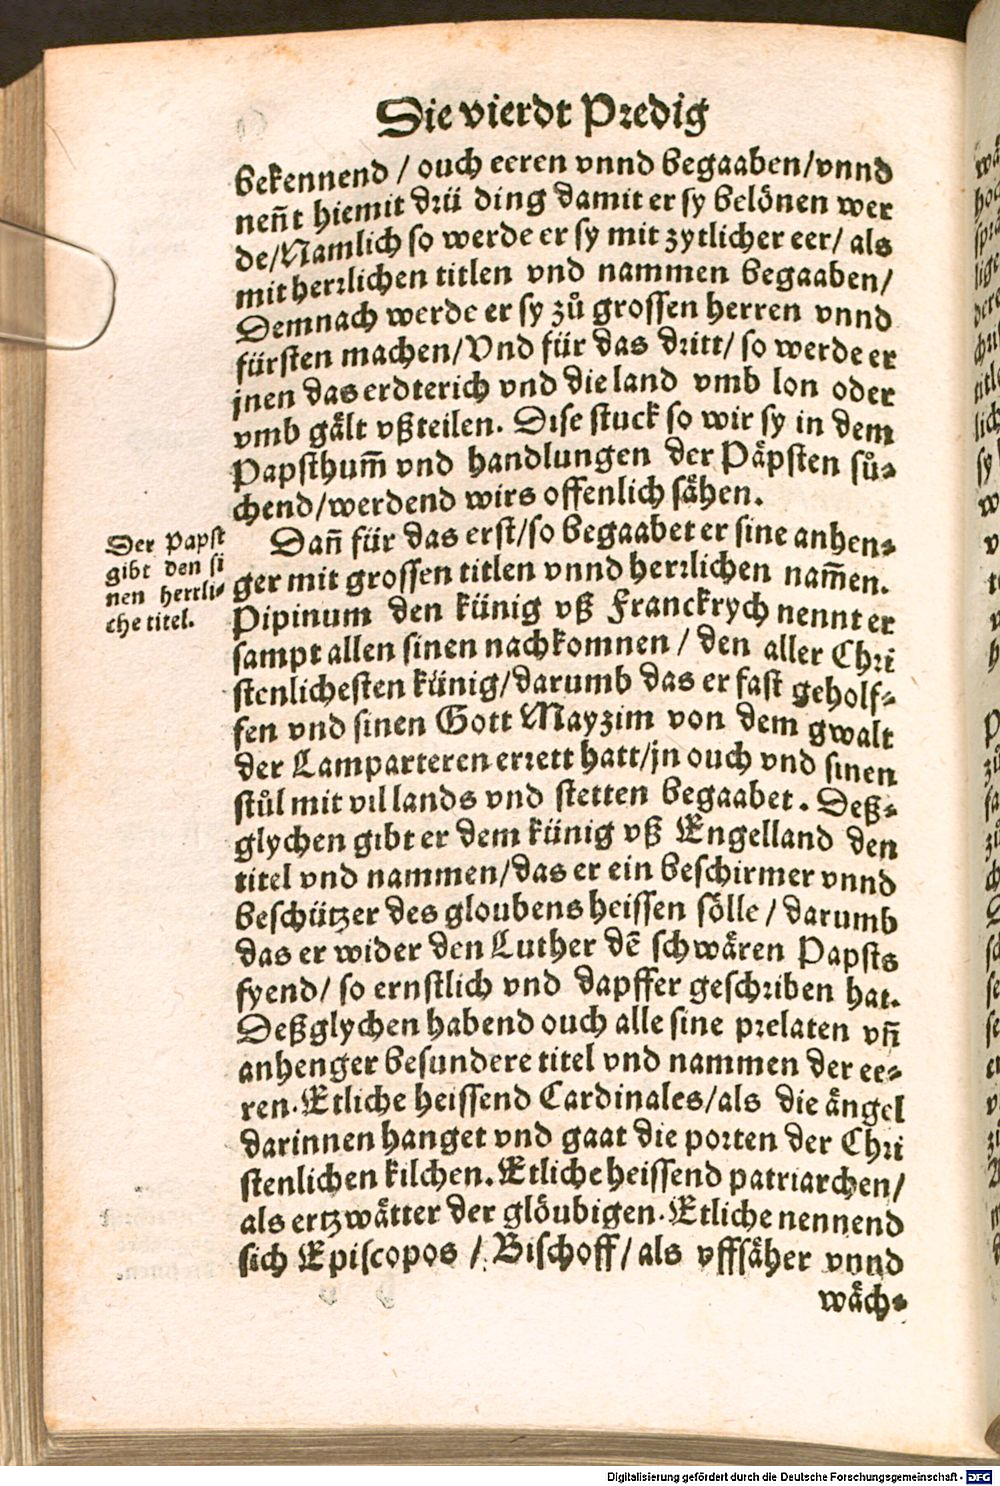 Die vierdt Predig
bekennend / ouch eeren vnnd begaaben/vnnd
neñt hiemit drü ding damit er sy belönen wer
de/Namlich so werde er sy mit zytlicher eer/ als
mit herrlichen titlen vnd nammen begaaben/
Demnach werde er sy zů grossen herren vnnd
fürsten machen/Vnd für das dritt/ so werde er
jnen das erdterich vnd die land vmb lon oder
vmb gält vßteilen. Dise stuck so wir sy in dem
Papsthum̃ vnd handlungen der Päpsten sů-
chend/werdend wirs offenlich sähen.
Dañ für das erst/so begaabet er sine anhen-
ger mit grossen titlen vnnd herrlichen nam̃en.
Pipinum den künig vß Franckrych nennt er
sampt allen sinen nachkomnen / den aller Chri
stenlichesten künig/darumb das er fast geholf-
fen vnd sinen Gott Mayzim von dem gwalt
der Lamparteren errett hatt/jn ouch vnd sinen
stůl mit vil lands vnd stetten begaabet. Deß-
glychen gibt er dem künig vß Engelland den
titel vnd nammen/das er ein beschirmer vnnd
beschützer des gloubens heissen sölle / darumb
das er wider den Luther dē schwären Papsts
fyend/ so ernstlich vnd dapffer geschriben hat.
Deßglychen habend ouch alle sine prelaten vñ
anhenger besundere titel vnd nammen der ee-
ren. Etliche heissend Cardinales/als die ängel
darinnen hanget vnd gaat die porten der Chri
stenlichen kilchen. Etliche heissend patriarchen/
als ertzwätter der glöubigen. Etliche nennend
sich Episcopos / Bischoff/ als vffsäher vnnd
wäch-
Der Papst
gibt den si
nen herrli-
che titel.
Digitalisierung gefördert durch die Deutsche Forschungsgemeinschaft - DFG